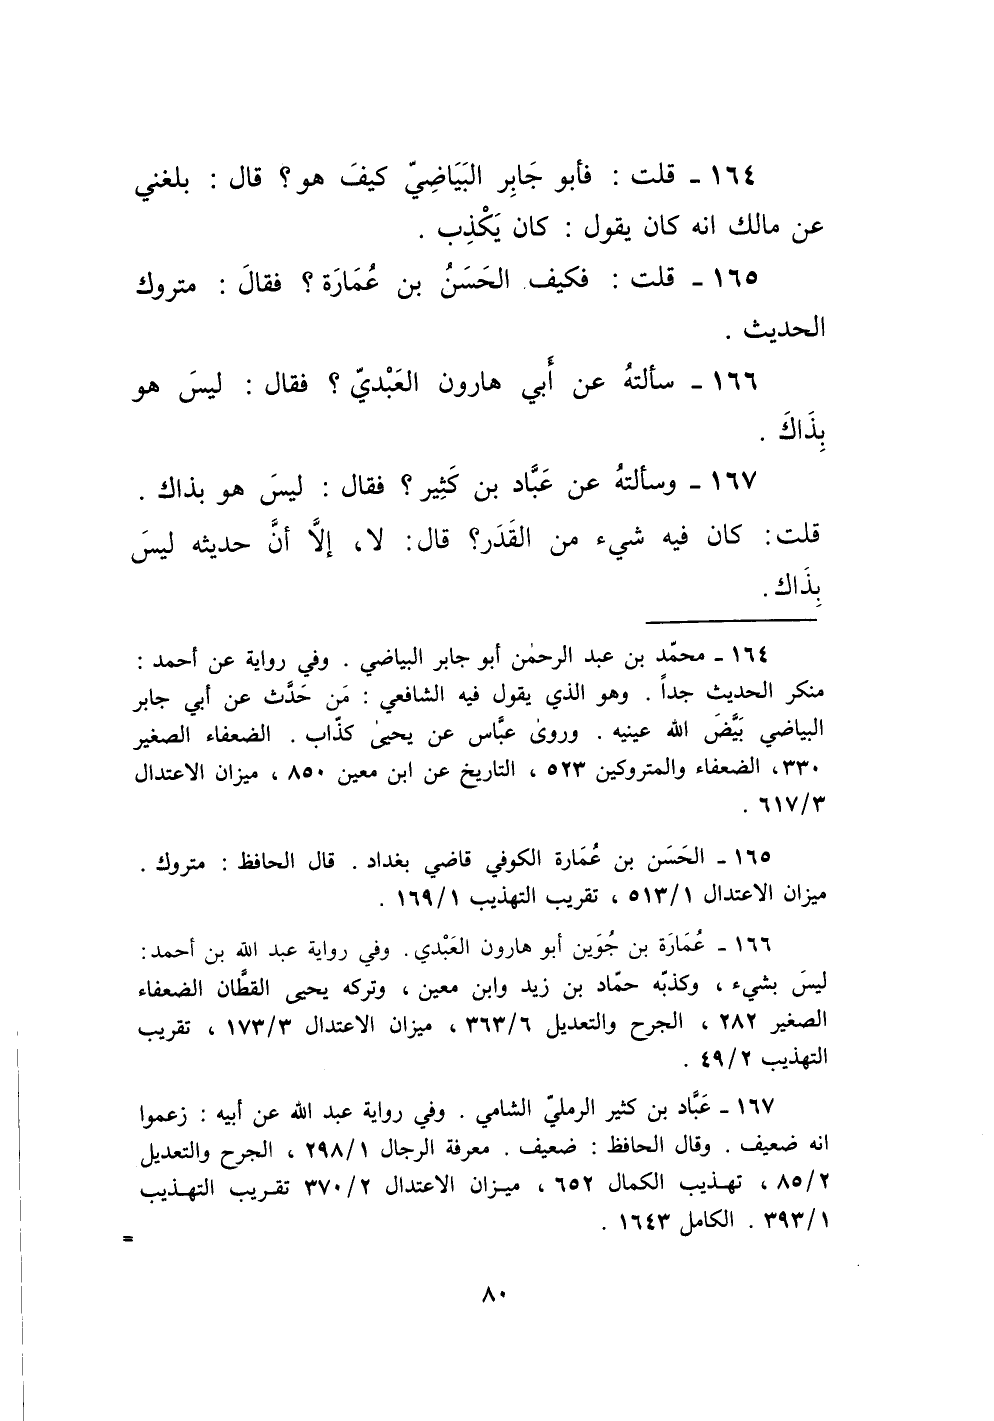 ١٦٤ ـ قلت : فأبو جَابِر البَيَاضِيّ كيفَ هو ؟ قال : بلغني
عن مالك انه كان يقول : كان يَكْذِب .
١٦٥ ـ قلت : فكيف الحَسَنُ بن عُمَارَة ؟ فقالَ : متروك
الحديث .
١٦٦ ـ سألتهُ عن أَبي هارون العَبْديّ ؟ فقال : ليسَ هو
بِذَاكَ .
١٦٧ ـ وسألتهُ عن عَبَّاد بن كَثِير ؟ فقال : ليسَ هو بذاك .
قلت : كان فيه شيء من القَدَر؟ قال: لا، إلَّا أنَّ حديثه ليسَ
بِذَاك.
١٦٤ ـ محمّد بن عبد الرحمٰن أبو جابر البياضي . وفي رواية عن أحمد :
منكر الحديث جداً . وهو الذي يقول فيه الشافعي : مَن حَدَّث عن أبي جابر
البياضي بَيَّضَ الله عينيه . وروىٰ عبَّاس عن يحيىٰ كذّاب . الضعفاء الصغير
٣٣٠، الضعفاء والمتروكين ٥٢٣ ، التاريخ عن ابن معين ٨٥٠ ، ميزان الاعتدال
٦١٧/٣ .
١٦٥ ـ الحَسَن بن عُمَارة الكوفي قاضي بغداد . قال الحافظ : متروك .
ميزان الاعتدال ٥١٣/١ ، تقريب التهذيب ١٦٩/١ .
١٦٦ ـ عُمَارَة بن جُوَين أبو هارون العَبْدي . وفي رواية عبد الله بن أحمد:
ليسَ بشيء ، وكذبّه حمّاد بن زيد وابن معين ، وتركه يحيى القطَّان الضعفاء
الصغير ٢٨٢ ، الجرح والتعديل ٣٦٣/٦ ، ميزان الاعتدال ١٧٣/٣ ، تقريب
التهذيب ٤٩/٢ .
١٦٧ ـ عَبَّاد بن كثير الرمليّ الشامي . وفي رواية عبد الله عن أبيه : زعموا
انه ضعيف . وقال الحافظ : ضعيف . معرفة الرجال ٢٩٨/١ ، الجرح والتعديل
٨٥/٢ ، تهذيب الكمال ٦٥٢ ، ميزان الاعتدال ٣٧٠/٢ تقريب التهذيب
٣٩٣/١ . الكامل ١٦٤٣ .
=
٨٠